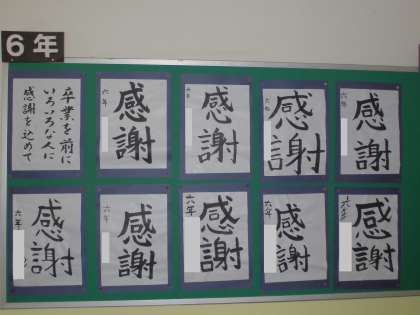 6年
卒業を前に
いろいろな人に
感謝を込めて
感謝
六年
感謝
六年
感謝
六年
感謝
六年
感謝
六年
感謝
六年
感謝
六年
感謝
六年
感謝
六年